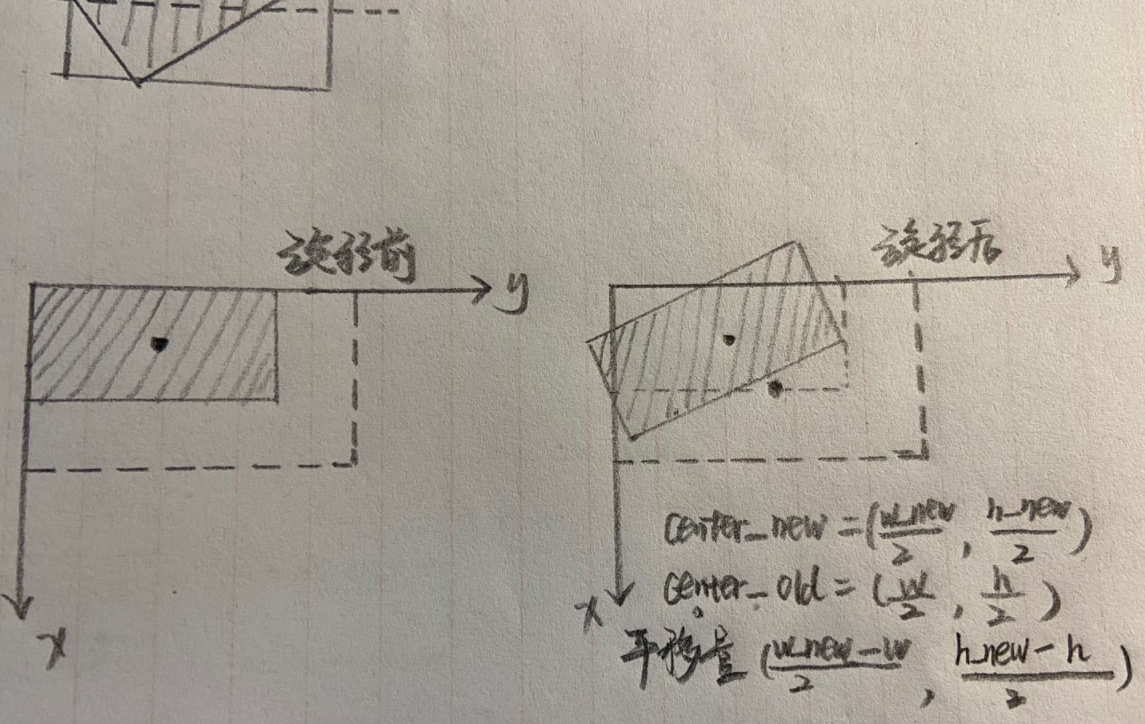 旋转前
y
x
旋转后
y
x
center_new = (w_new/2, h_new/2)
center_old = (w/2, h/2)
平移量 (w_new-w/2, h_new-h/2)